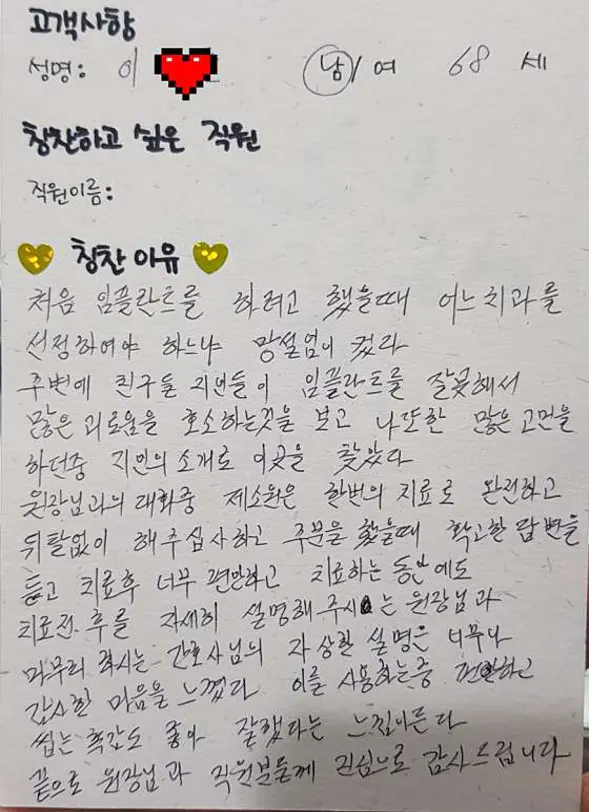 고객사항
성명: 이 남/여 68 세
칭찬하고 싶은 직원
직원이름:
칭찬 이유
처음 임플란트를 하려고 했을때 어느치과를
선정하여야 하느냐 망설임이 컸다
주변에 친구들 지인들이 임플란트를 잘못해서
많은 괴로움을 호소하는것을 보고 나또한 많은 고민을
하던중 지인의 소개로 이곳을 찾았다
원장님과의 대화중 제소원은 한번의 치료로 완전하고
뒤탈없이 해주십사하고 주문을 했을때 확고한 답변을
듣고 치료후 너무 편안하고 치료하는 동안에도
치료전.후를 자세히 설명해 주시는 원장님과
마무리 하시는 간호사님의 자상한 설명은 너무나
감사한 마음을 느꼈다 이를 사용하는중 편안하고
씹는 촉감도 좋아 잘했다는 느낌이든다
끝으로 원장님과 직원분들께 진심으로 감사드립니다